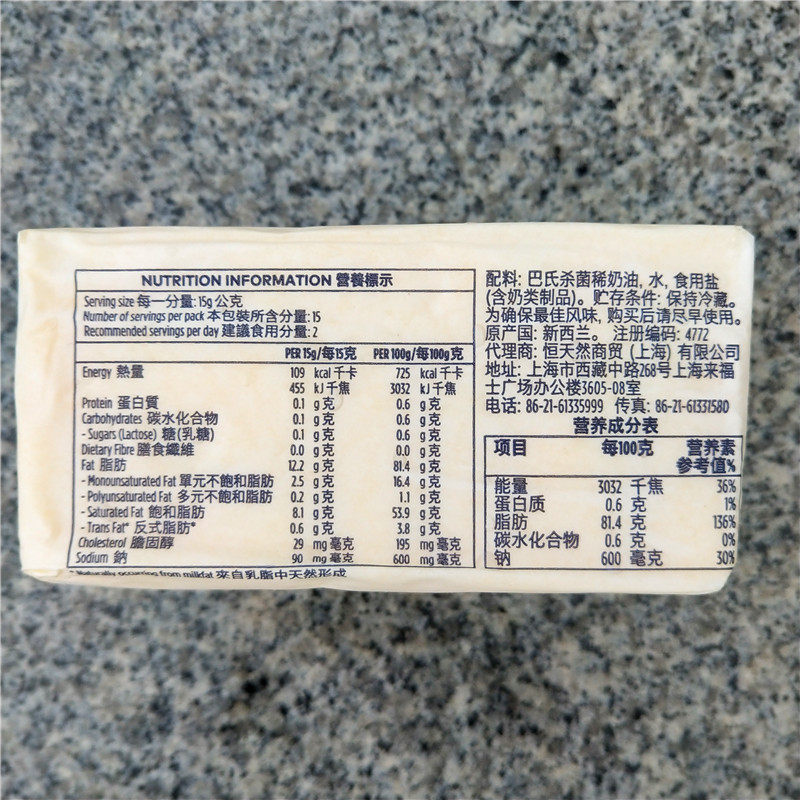 NUTRITION INFORMATION 營養標示
Serving size 每一分量: 15g 公克
Number of servings per pack 本包裝所含分量: 15
Recommended servings per day 建議食用分量: 2
PER 15g/每15克 PER 100g/每100g克
Energy 熱量 109 kcal 千卡 725 kcal 千卡
455 kJ 千焦 3032 kJ 千焦
Protein 蛋白質 0.1 g 克 0.6 g 克
Carbohydrates 碳水化合物 0.1 g 克 0.6 g 克
- Sugars (Lactose) 糖(乳糖) 0.1 g 克 0.6 g 克
Dietary Fibre 膳食纖維 0.0 g 克 0.0 g 克
Fat 脂肪 12.2 g 克 81.4 g 克
- Monounsaturated Fat 單元不飽和脂肪 2.5 g 克 16.4 g 克
- Polyunsaturated Fat 多元不飽和脂肪 0.2 g 克 1.1 g 克
- Saturated Fat 飽和脂肪 8.1 g 克 53.9 g 克
- Trans Fat* 反式脂肪* 0.6 g 克 3.8 g 克
Cholesterol 膽固醇 29 mg 毫克 195 mg 毫克
Sodium 鈉 90 mg 毫克 600 mg 毫克
* Naturally occurring from milkfat 來自乳脂中天然形成
配料: 巴氏杀菌稀奶油, 水, 食用盐
(含奶类制品)。贮存条件: 保持冷藏。
为确保最佳风味, 购买后请尽早使用。
原产国: 新西兰。 注册编码: 4772
代理商: 恒天然商贸 (上海) 有限公司
地址: 上海市西藏中路268号上海来福
士广场办公楼3605-08室
电话: 86-21-61335999 传真: 86-21-61331580
营养成分表
项目 每100克 营养素
参考值%
能量 3032 千焦 36%
蛋白质 0.6 克 1%
脂肪 81.4 克 136%
碳水化合物 0.6 克 0%
钠 600 毫克 30%